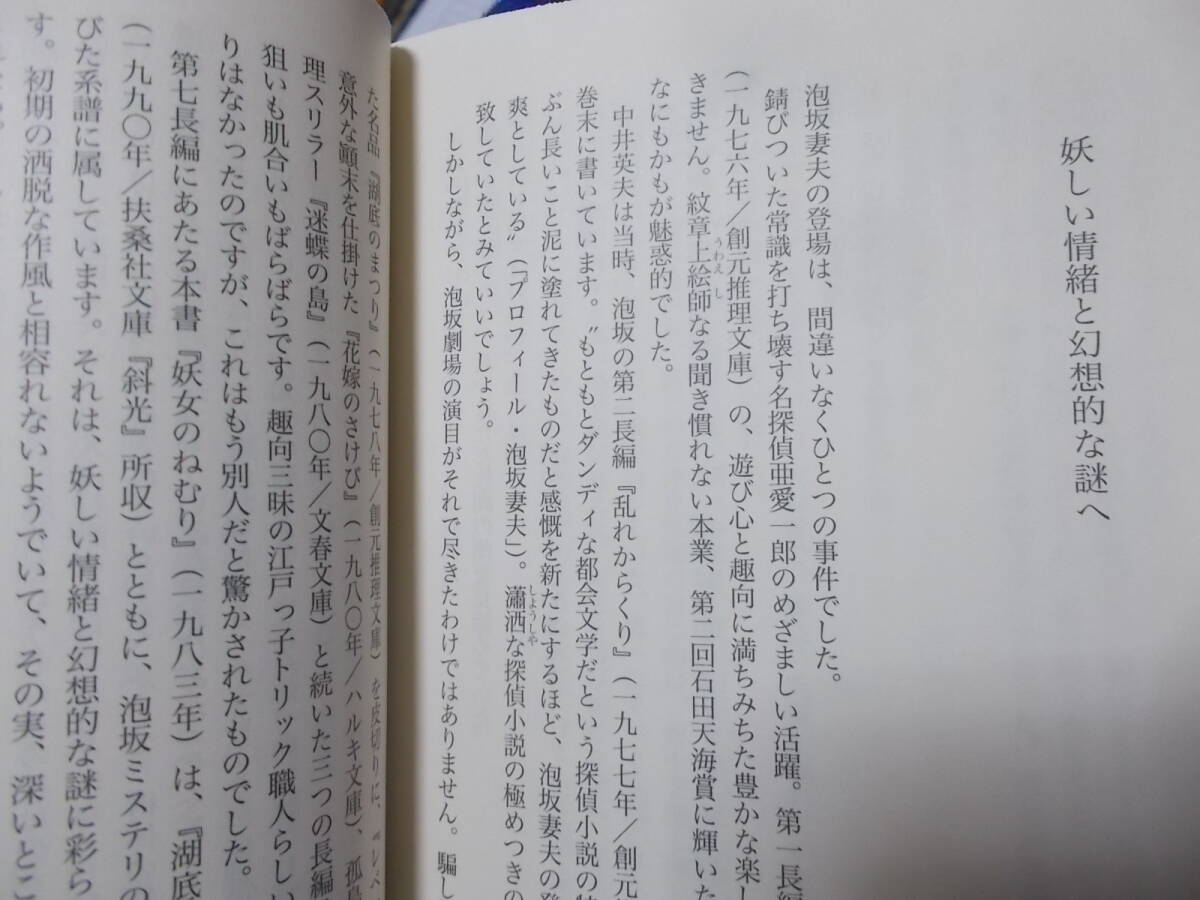 妖しい情緒と幻想的な謎へ
泡坂妻夫の登場は、間違いなくひとつの事件でした。
錆びついた常識を打ち壊す名探偵亜愛一郎のめざましい活躍。第一長編
（一九七六年／創元推理文庫）の、遊び心と趣向に満ちみちた豊かな楽し
きません。紋章上絵師なる聞き慣れない本業、第二回石田天海賞に輝いた
うわえし
なにもかもが魅惑的でした。
中井英夫は当時、泡坂の第二長編『乱れからくり』（一九七七年／創元
巻末に書いています。〝もともとダンディな都会文学だという探偵小説の特
ぶん長いこと泥に塗れてきたものだと感慨を新たにするほど、泡坂妻夫の登
爽としている〟（「プロフィール・泡坂妻夫」）。瀟洒な探偵小説の極めつきの
しょうしゃ
致していたとみていいでしょう。
しかしながら、泡坂劇場の演目がそれで尽きたわけではありません。騙し
た名品『湖底のまつり』（一九七八年／創元推理文庫）を皮切りに、
意外な顚末を仕掛けた『花嫁のさけび』（一九八〇年／ハルキ文庫）、孤島
理スリラー『迷蝶の島』（一九八〇年／文春文庫）と続いた三つの長編
狙いも肌合いもばらばらです。趣向三昧の江戸っ子トリック職人らしい
りはなかったのですが、これはもう別人だと驚かされたものでした。
第七長編にあたる本書『妖女のねむり』（一九八三年）は、『湖底
（一九九〇年／扶桑社文庫『斜光』所収）とともに、泡坂ミステリの
びた系譜に属しています。それは、妖しい情緒と幻想的な謎に彩ら
す。初期の洒脱な作風と相容れないようでいて、その実、深いとこ